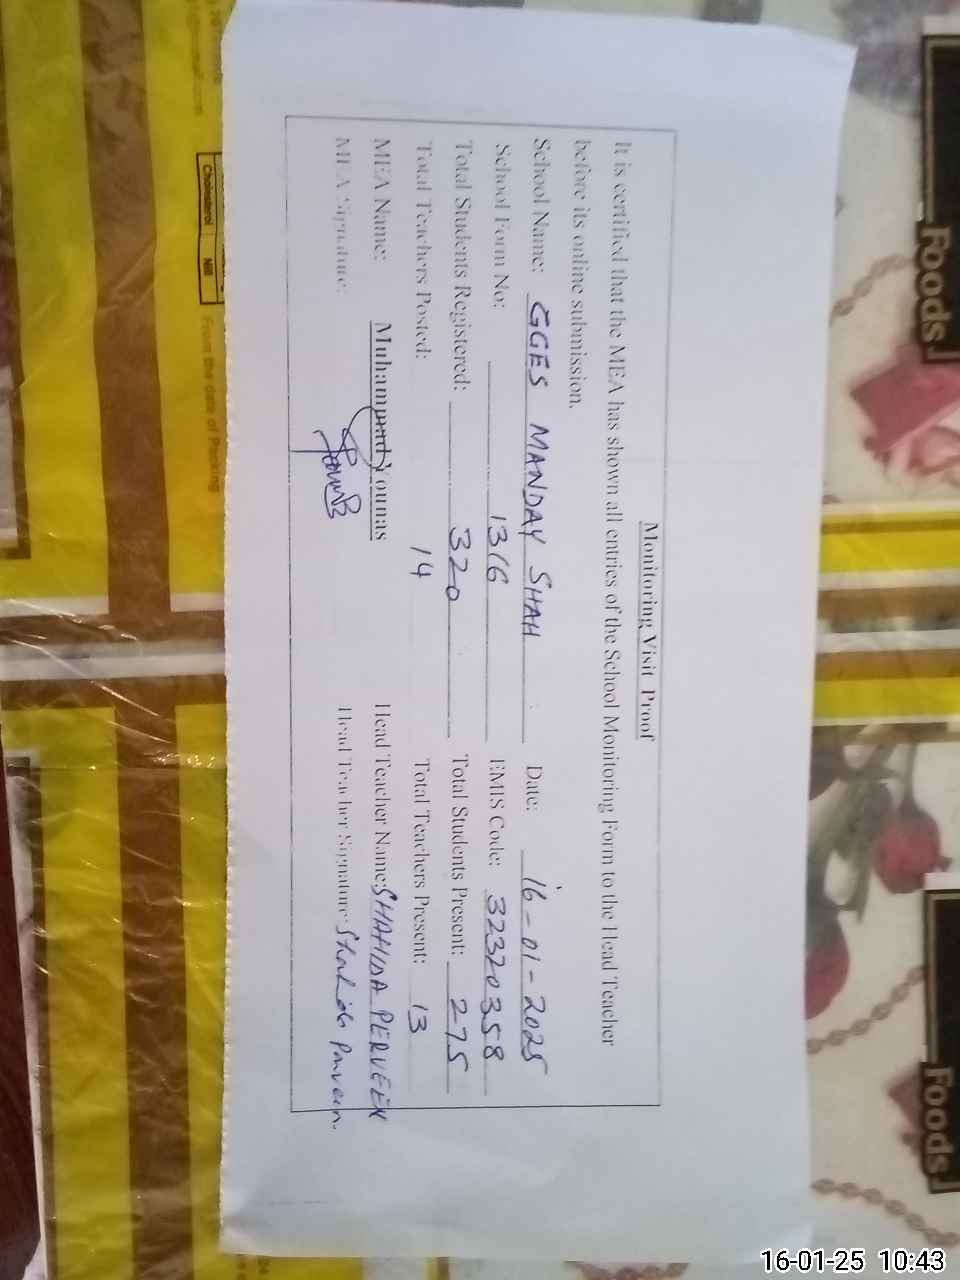 Monitoring Visit Proof
It is certified that the MEA has shown all entries of the School Monitoring Form to the Head Teacher
before its online submission.
School Name: GGES MANDAY SHAH Date: 16-01-2025
School Form No: 1316 EMIS Code: 32320358
Total Students Registered: 320 Total Students Present: 275
Total Teachers Posted: 14 Total Teachers Present: 13
MEA Name: Muhammad Younas Head Teacher Name: SHAHIDA PERVEEN
MEA Signature: Head Teacher Signature: Shahida Parveen.
Foods
Foods
Cholesterol Nill
From the date of Packing
16-01-25 10:43